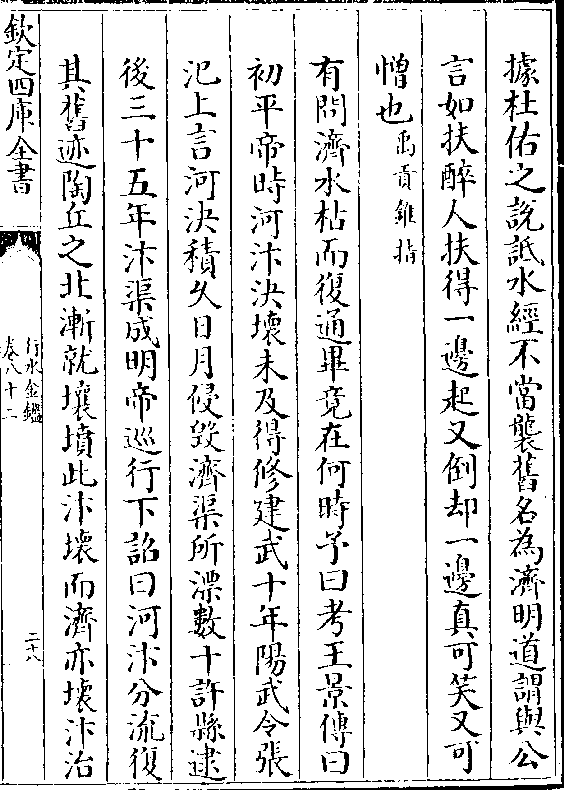 據杜佑之說詆水經不當襲舊名為濟明道謂與公
言如扶醉人扶得一邊起又倒却一邊真可笑又可
憎也禹貢錐指
有問濟水枯而復通畢竟在何時予曰考王景傳曰
初平帝時河汴決壞未及得修建武十年陽武令張
汜上言河決積久日月侵毀濟渠所漂數十許縣逮
後三十五年汴渠成明帝巡行下詔曰河汴分流復
其舊迹陶丘之北漸就壤墳此汴壞而濟亦壞汴治
欽定四庫全書
行水金鑑
卷八十二
二十八